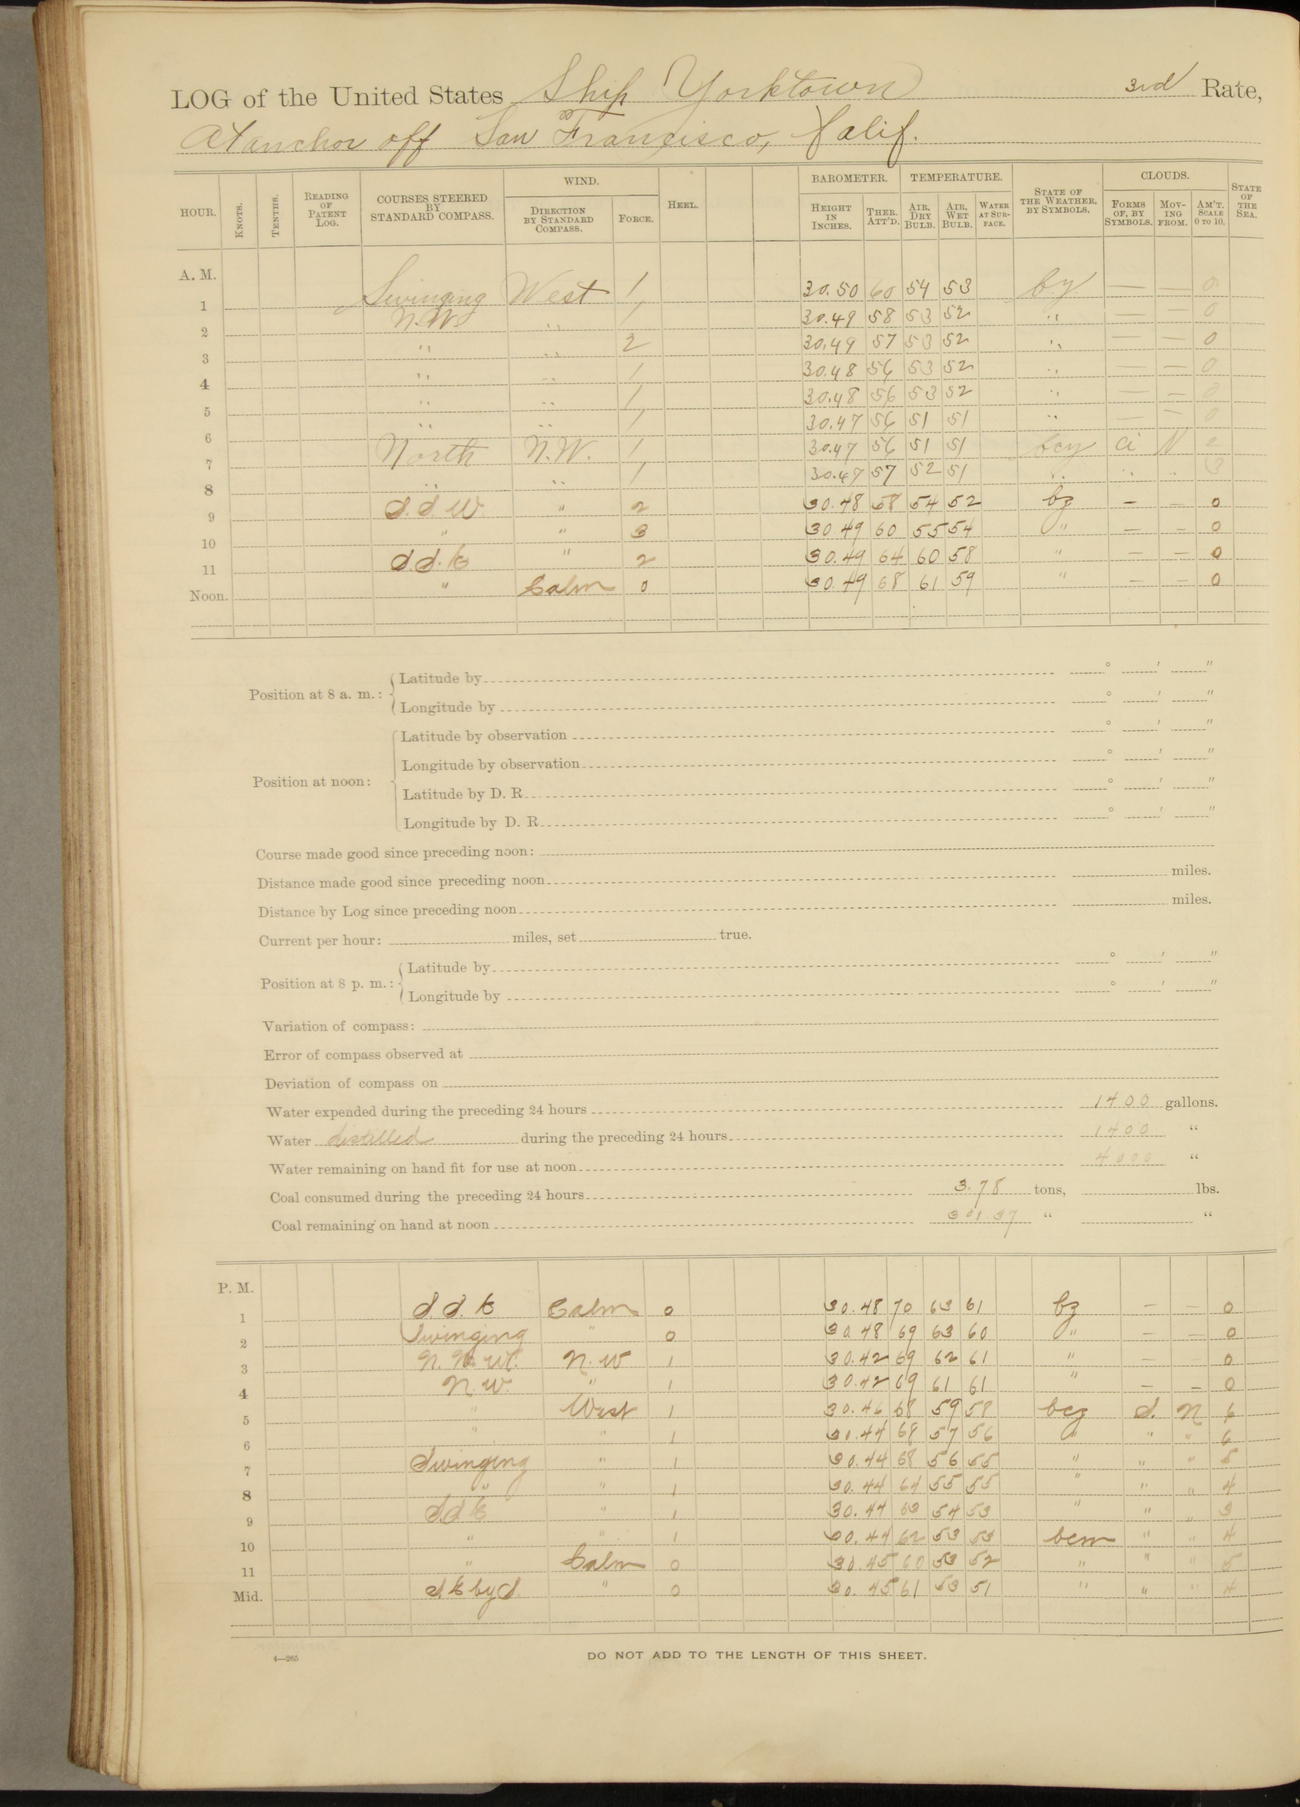 LOG of the United States Ship Yorktown 3rd Rate,
At anchor off San Francisco, Calif.
HOUR. KNOTS. TENTHS. READING OF PATENT LOG. COURSES STEERED BY STANDARD COMPASS. WIND. DIRECTION BY STANDARD COMPASS. FORCE. HEEL. BAROMETER. HEIGHT IN INCHES. THER. ATT'D. TEMPERATURE. AIR, DRY BULB. AIR, WET BULB. WATER AT SURFACE. STATE OF THE WEATHER, BY SYMBOLS. CLOUDS. FORMS OF, BY SYMBOLS. MOVING FROM. AM'T. SCALE 0 TO 10. STATE OF THE SEA.
A. M.
1 Swinging West 1 30.50 60 54 53 — — 0
2 N.W. " 1 30.49 58 53 52 " — — 0
3 " " 2 30.49 57 53 52 " — — 0
4 " " 1 30.48 56 53 52 " — — 0
5 " " 1 30.48 56 53 52 " — — 0
6 " " 1 30.47 56 51 51 " — — 0
7 North N.W. 1 30.47 56 51 51 Ci N
8 " " 1 30.47 57 52 51 " " " 3
9 S.S.W " 2 30.48 58 54 52 bz — — 0
10 " " 3 30 49 60 55 54 " — — 0
11 S.S.E " 2 30.49 64 60 58 " — — 0
Noon. " Calm 0 30.49 68 61 59 " — — 0
Position at 8 a. m.: Latitude by ° ' "
Longitude by ° ' "
Position at noon: Latitude by observation ° ' "
Longitude by observation ° ' "
Latitude by D. R. ° ' "
Longitude by D. R. ° ' "
Course made good since preceding noon:
Distance made good since preceding noon miles.
Distance by Log since preceding noon miles.
Current per hour: miles, set true.
Position at 8 p. m.: Latitude by ° ' "
Longitude by ° ' "
Variation of compass:
Error of compass observed at
Deviation of compass on
Water expended during the preceding 24 hours 1400 gallons.
Water distilled during the preceding 24 hours 1400 "
Water remaining on hand fit for use at noon 4000 "
Coal consumed during the preceding 24 hours 3.78 tons, lbs.
Coal remaining on hand at noon 301.37 " "
P. M.
1 S.S.E Calm 0 30.48 70 63 61 bz — — 0
2 Swinging " 0 30.48 69 63 60 " — — 0
3 N.N.W. N.W 1 30.42 69 62 61 " — 0
4 N.W. " 1 30.42 69 61 61 " — — 0
5 " West 1 30.46 68 59 58 bcz S. N 6
6 " " 1 30.44 68 57 56 " " " 6
7 Swinging " 1 30.44 68 56 55 " " " 5
8 " " 1 30.44 64 55 55 " " " 4
9 S.S.E " 1 30.44 63 54 53 " " " 3
10 " " 1 30.44 62 53 53 bcm " " 4
11 " Calm 0 30.45 60 53 52 " " " 5
Mid. S.E by S. " 0 30.45 61 53 51 " " " 4
4—265
DO NOT ADD TO THE LENGTH OF THIS SHEET.